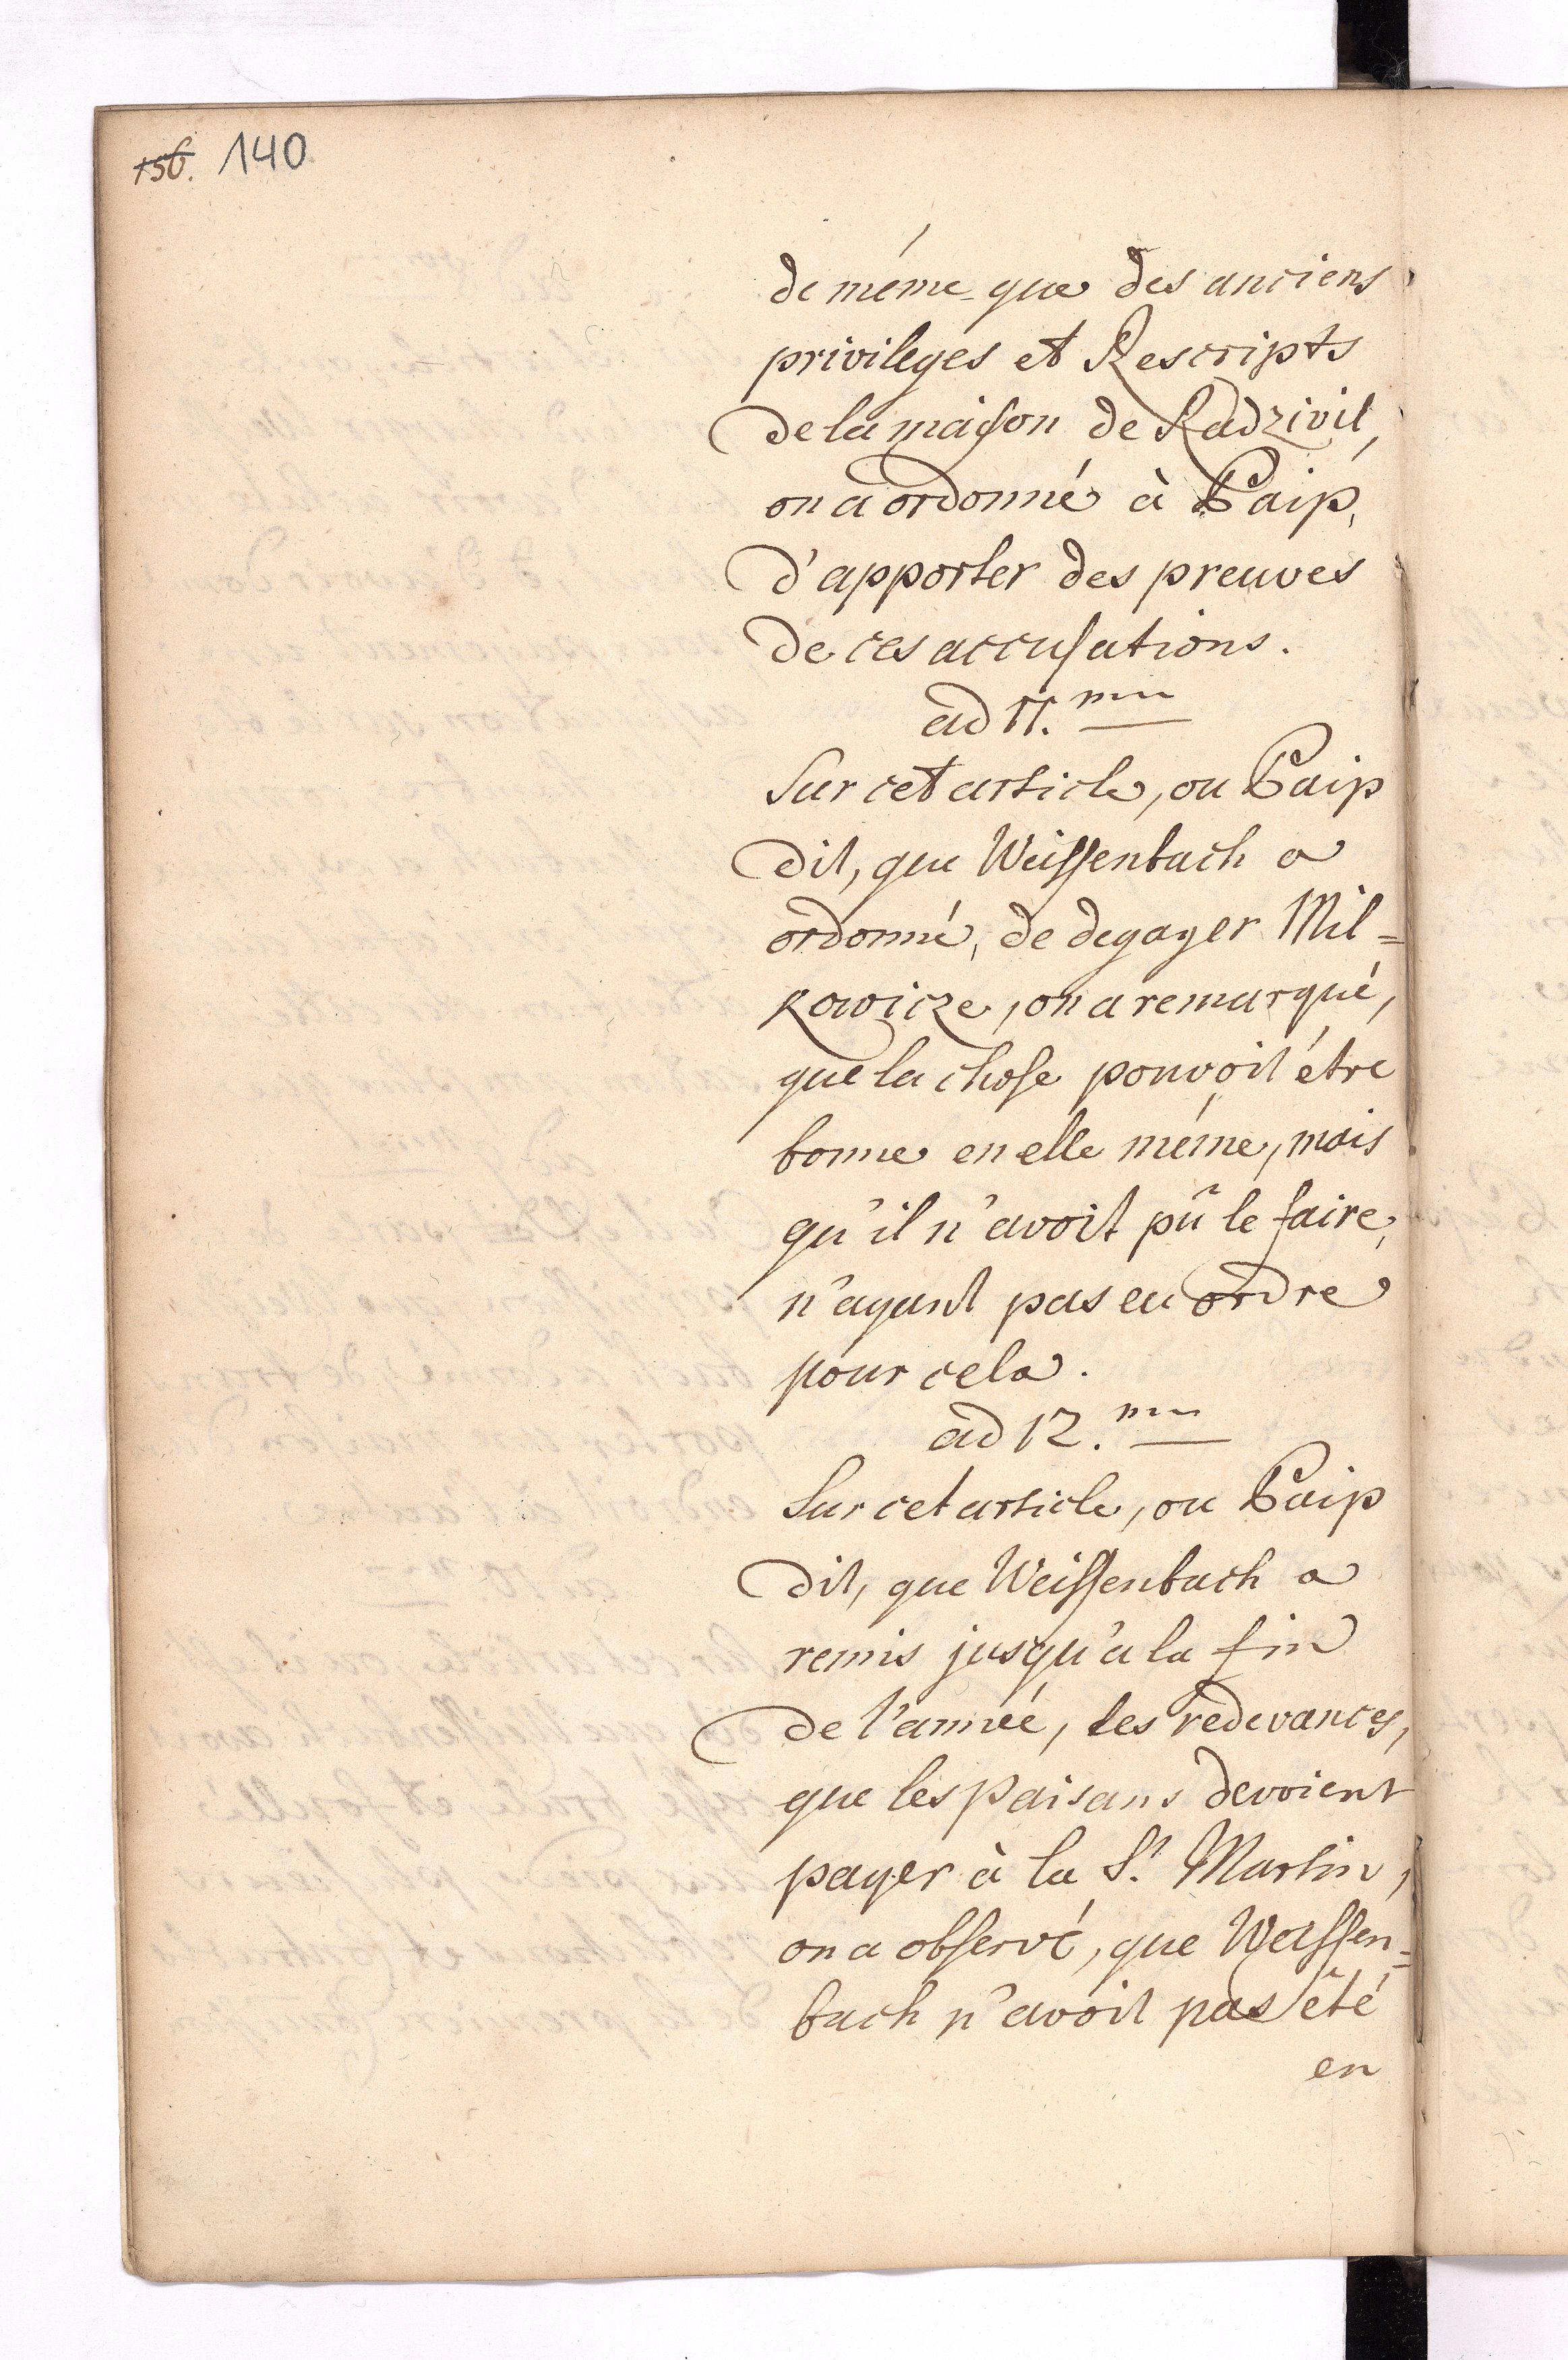 156. 140
de même que des anciens
privileges et Rescripts
de la maison de Radzivil,
on a ordonné à Paip,
d'apporter des preuves
de ces accusations.
ad 11.mum
Sur cet article, ou Paip
dit, que Weissenbach a
ordonné, de degager Mil=
kowicze, on a remarqué,
que la chose pouvoit être
bonne en elle même, mais
qu'il n'avoit pû le faire,
n'ayant pas eu ordre
pour cela.
ad 12.mum
Sur cet article, ou Paip
dit, que Weissenbach a
remis jusqu'a la fin
de l'année, les redevances,
que les paisans devoient
payer à la St. Martin,
on a observé, que Weissen=
bach n'avoit pas êté
en